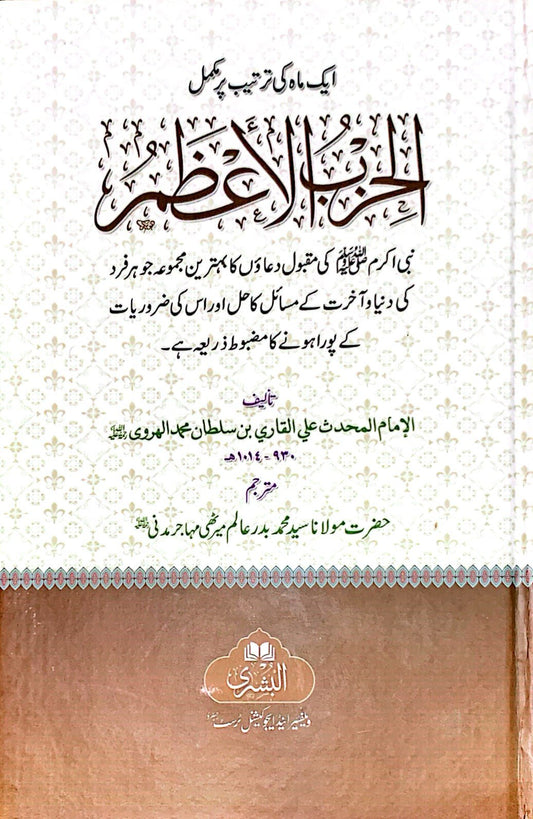 ایک ماہ کی ترتیب پر مکمل
الحِزبُ الأَعْظَمُ
نبی اکرم ﷺ کی مقبول دعاؤں کا بہترین مجموعہ جو ہر فرد
کی دنیا و آخرت کے مسائل کا حل اور اس کی ضروریات
کے پورا ہونے کا مضبوط ذریعہ ہے۔
تألیف
الإمام المحدث علي القاري بن سلطان محمد الهروي
٩٣٠ - ١٠١٤ھ
مترجم
حضرت مولانا سید محمد بدر عالم میرٹھی مہاجر مدنی
البشریٰ
ویلفیئر اینڈ ایجوکیشنل ٹرسٹ